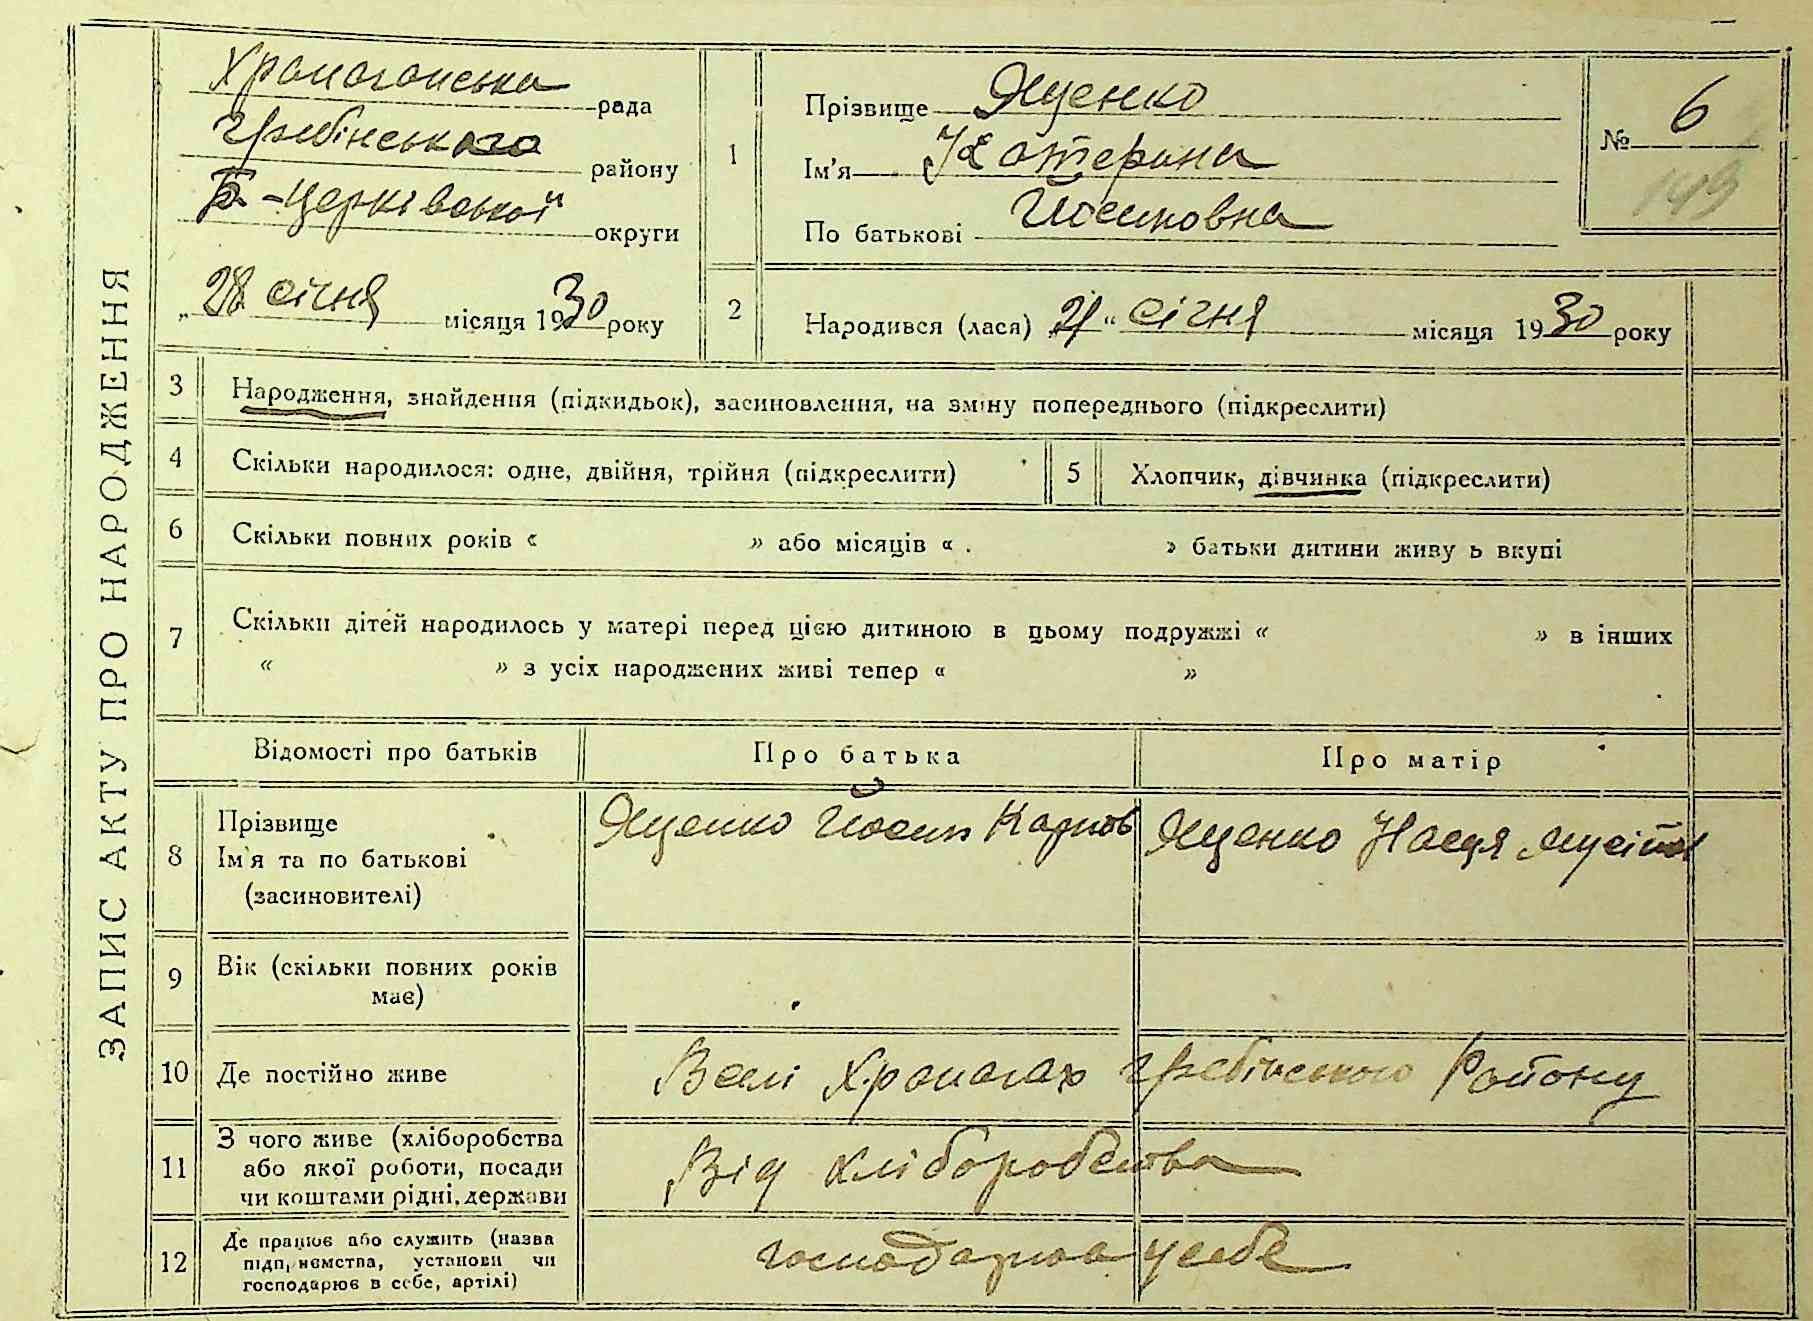 ЗАПИС АКТУ ПРО НАРОДЖЕННЯ
Храпачанська рада
Гребінського району
Б-Церківської округи
„28 січня місяця 1930 року
1
Прізвище Яценко
Ім'я Катерина
По батькові Йосиповна
№ 6
149
2
Народився (лася) 21 “ січня місяця 1930 року
3 Народження, знайдення (підкидьок), засиновлення, на зміну попереднього (підкреслити)
4 Скільки народилося: одне, двійня, трійня (підкреслити)
5 Хлопчик, дівчинка (підкреслити)
6 Скільки повних років « » або місяців « . » батьки дитини живу ь вкупі
7 Скільки дітей народилось у матері перед цією дитиною в цьому подружжі « » в інших
« » з усіх народжених живі тепер « »
Відомості про батьків
Про батька
Про матір
8 Прізвище
Ім'я та по батькові
(засиновителі)
Яценко Йосип Карпов
Яценко Настя Мусіїв
9 Вік (скільки повних років
має)
10 Де постійно живе
Вселі Храпачах Гребінського Району
11 З чого живе (хліборобства
або якої роботи, посади
чи коштами рідні, держави
Від хліборобства
12 Де працює або служить (назва
підприємства, установи чи
господарює в себе, артілі)
господарює усебе